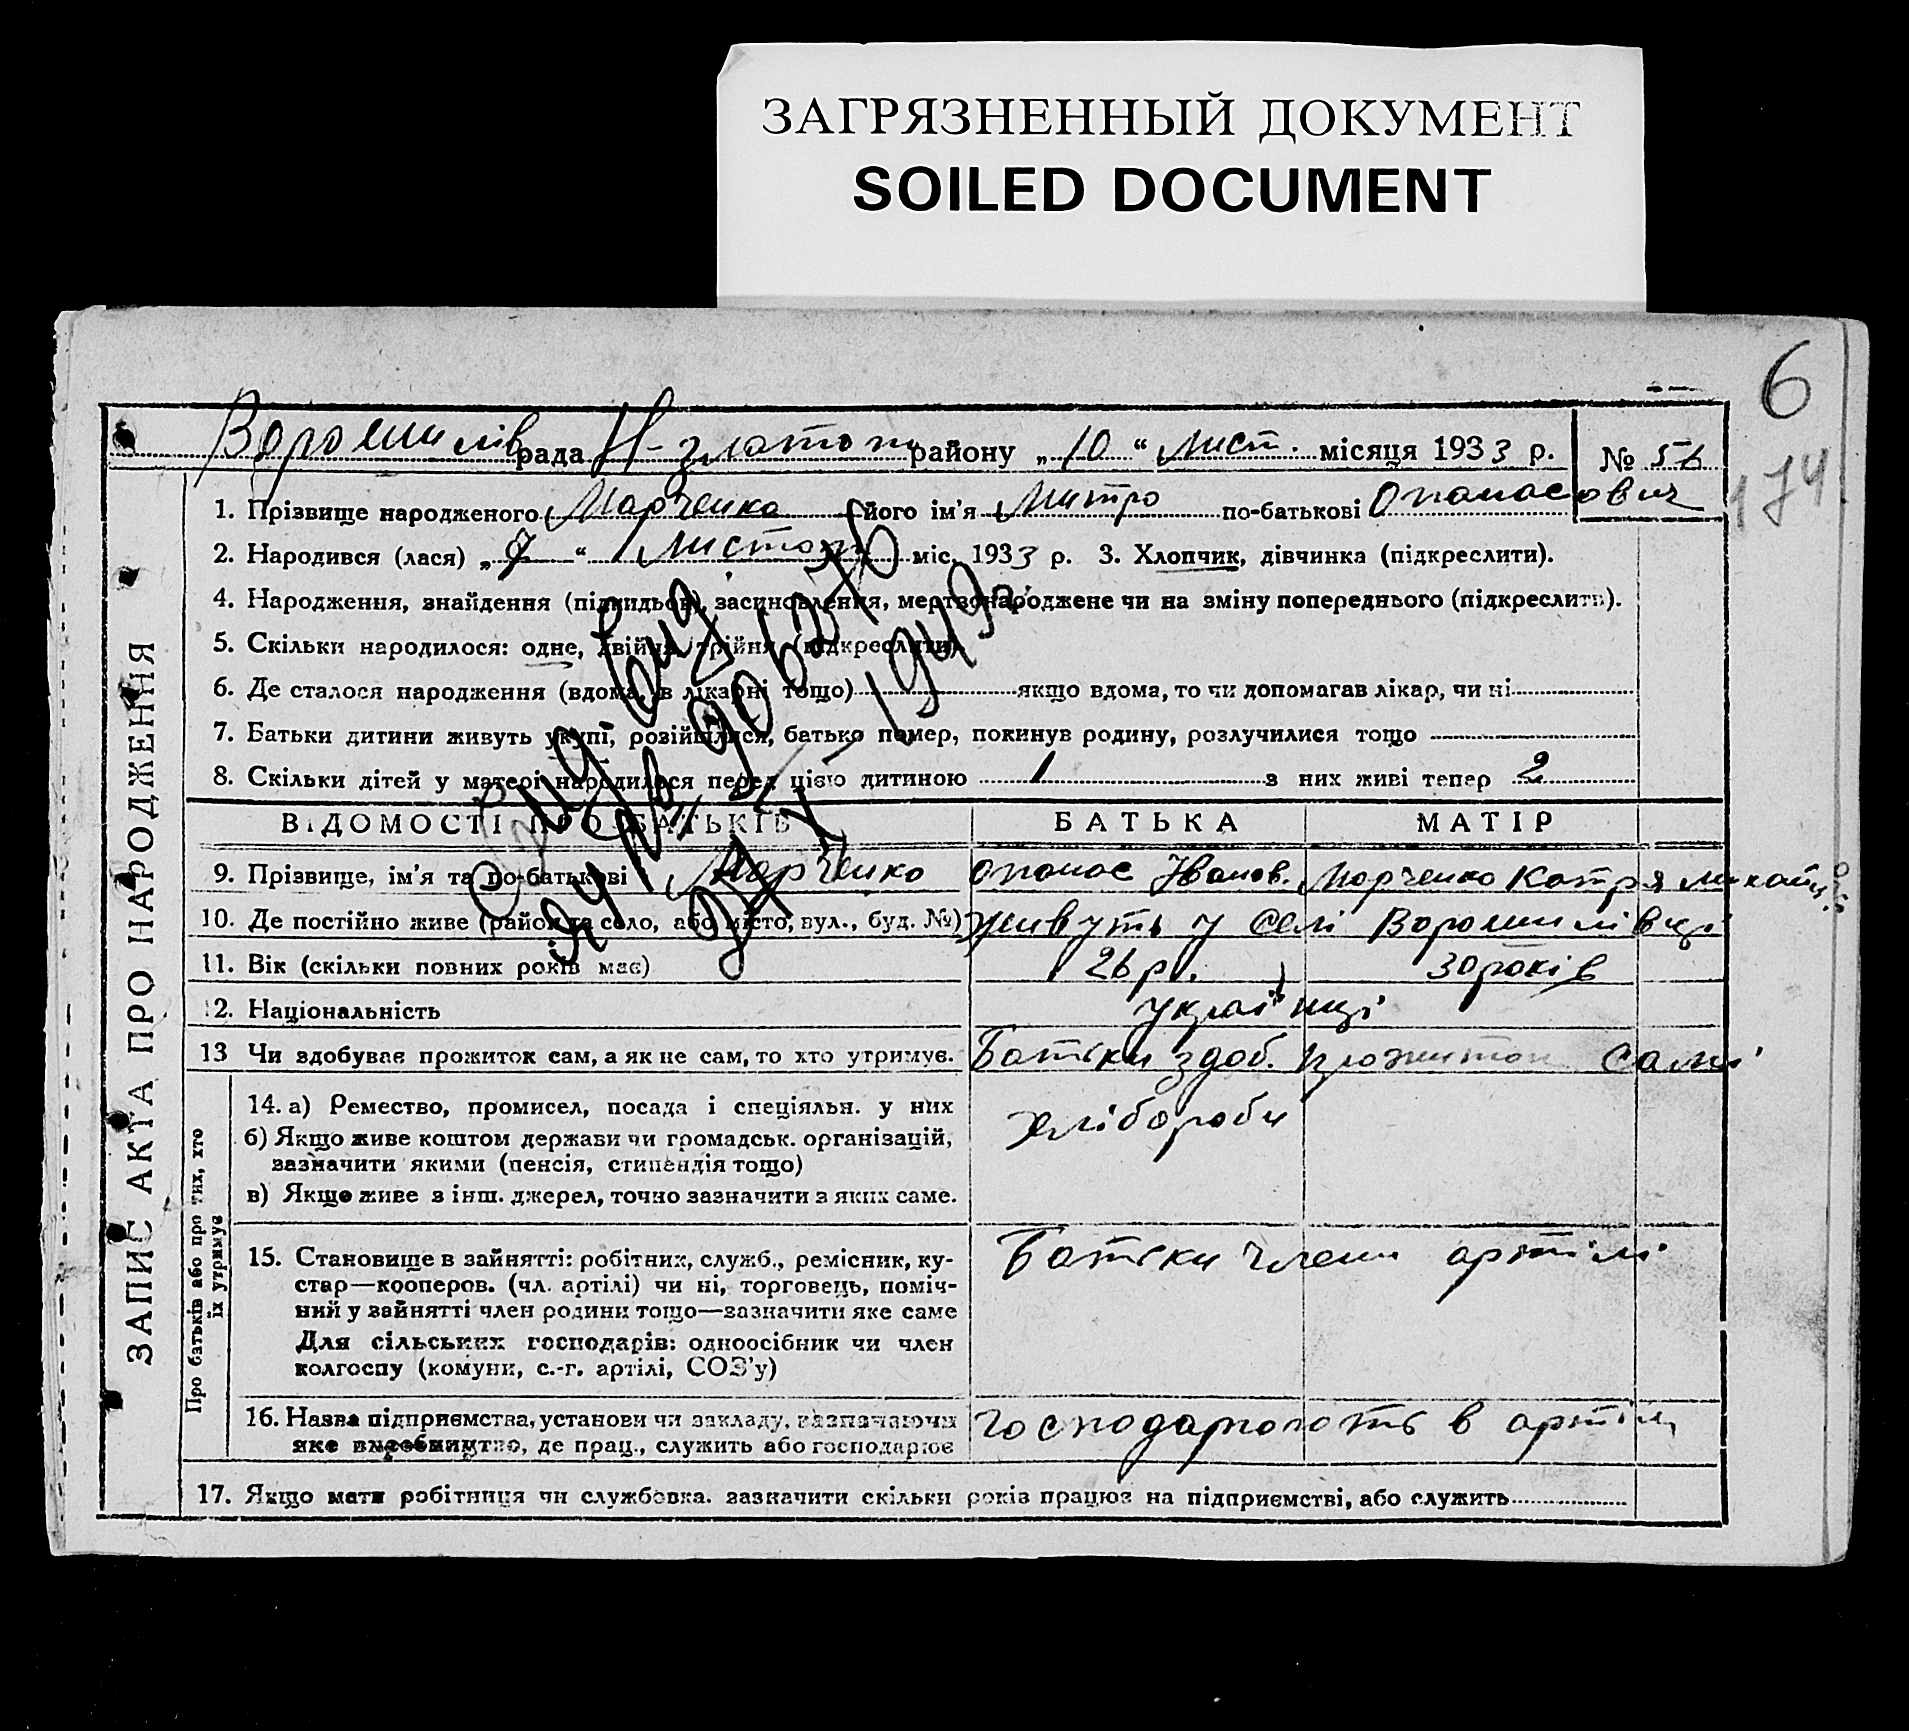 ЗАГРЯЗНЕННЫЙ ДОКУМЕНТ
SOILED DOCUMENT
6
Ворошилів рада Н-златоп району „10“ лист. місяця 1933 р. № 56
174
1. Прізвище народженого Марченко його ім'я Митро по-батькові Опанасович
2. Народився (лася) „7“ листоп міс. 1933 р. 3. Хлопчик, дівчинка (підкреслити).
4. Народження, знайдення (підкидьок), засиновлення, мертвонароджене чи на зміну попереднього (підкреслити).
5. Скільки народилося: одне, двійня, трійня (підкреслити).
6. Де сталося народження (вдома, в лікарні тощо) якщо вдома, то чи допомагав лікар, чи ні
7. Батьки дитини живуть укупі, розійшлися, батько помер, покинув родину, розлучилися тощо
8. Скільки дітей у матері народилося перед цією дитиною 1 з них живі тепер 2
ВІДОМОСТІ ПРО БАТЬКІВ БАТЬКА МАТІР
9. Прізвище, ім'я та по-батькові Марченко Опанас Іванов. Марченко Катря
10. Де постійно живе (район та село, або місто, вул., буд. №) живуть у селі Ворошилівці
11. Вік (скільки повних років має) 26 р. 30 років
12. Національність українці
13 Чи здобуває прожиток сам, а як не сам, то хто утримує. Батьки здоб. прожиток самі
14. а) Ремество, промисел, посада і спеціяльн. у них хлібороби
б) Якщо живе коштом держави чи громадськ. організацій,
зазначити якими (пенсія, стипендія тощо)
в) Якщо живе з інш. джерел, точно зазначити з яких саме.
15. Становище в зайнятті: робітник, служб., ремісник, ку- Батьки члени артілі
стар—кооперов. (чл. артілі) чи ні, торговець, поміч-
ний у зайнятті член родини тощо—зазначити яке саме
Для сільських господарів: одноосібник чи член
колгоспу (комуни, с.-г. артілі, СОЗ'у)
16. Назва підприємства, установи чи закладу, зазначаючи господарюють в артілі
яке виробництво, де прац., служить або господарює
17. Якщо мати робітниця чи службовка. зазначити скільки років працює на підприємстві, або служить
ЗАПИС АКТА ПРО НАРОДЖЕННЯ
Про батьків або про тих, хто
їх утримує
1949 г.